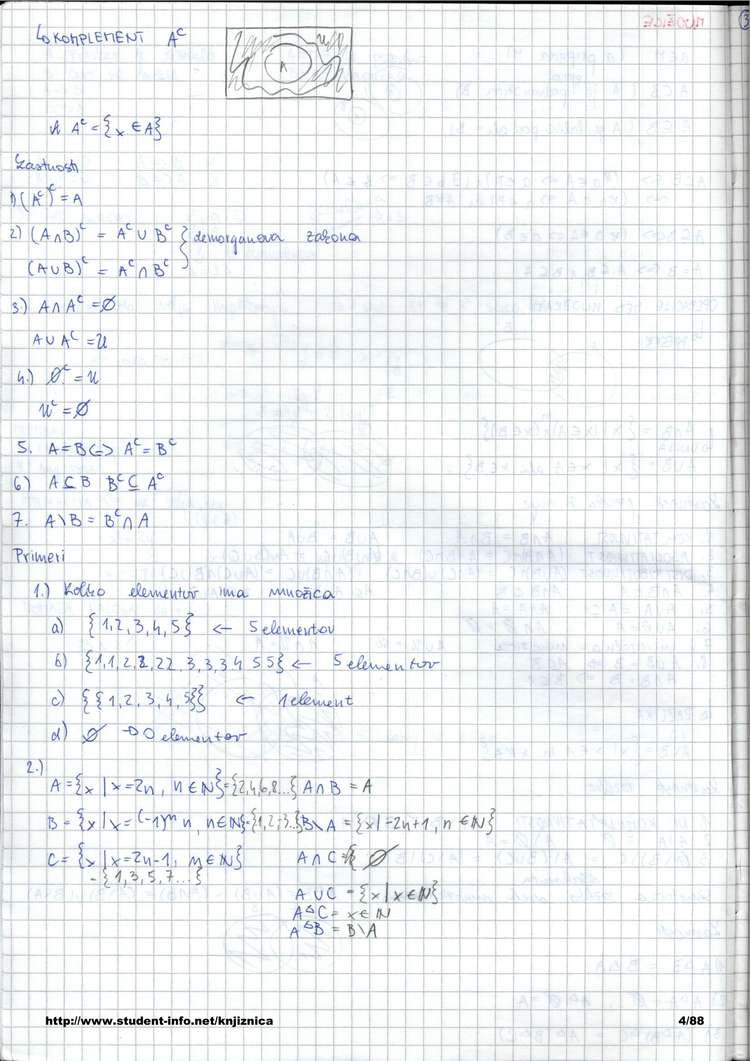 ↳ KOMPLEMENT A^c
U
A
A^c = {x ∈ A}
Lastnosti
1) (A^c)^c = A
2) (A∩B)^c = A^c ∪ B^c } demorganova zakona
(A∪B)^c = A^c ∩ B^c
3) A∩A^c = ∅
A∪A^c = U
4.) ∅^c = U
U^c = ∅
5. A=B <=> A^c = B^c
6) A⊆B B^c ⊆ A^c
7. A\B = B^c ∩ A
Primeri
1.) Koliko elementov ima množica
a) {1,2,3,4,5} ← 5 elementov
b) {1,1,2,2,22,3,3,3 4 5 5} ← 5 elementov
c) {{1,2,3,4,5}} ← 1 element
d) ∅ → 0 elementov
2.)
A = {x | x=2n, n∈N} = {2,4,6,8...} A∩B = A
B = {x | x=(-1)^n n, n∈N} = {1,2,-3...} B\A = {x | -2n+1, n∈N}
C = {x | x=2n-1, n∈N} A∩C = { ∅
= {1,3,5,7...}
A∪C = {x | x∈N}
A△C = x∈N
A△B = B\A
MNOŽICE
3
http://www.student-info.net/knjiznica 4/88